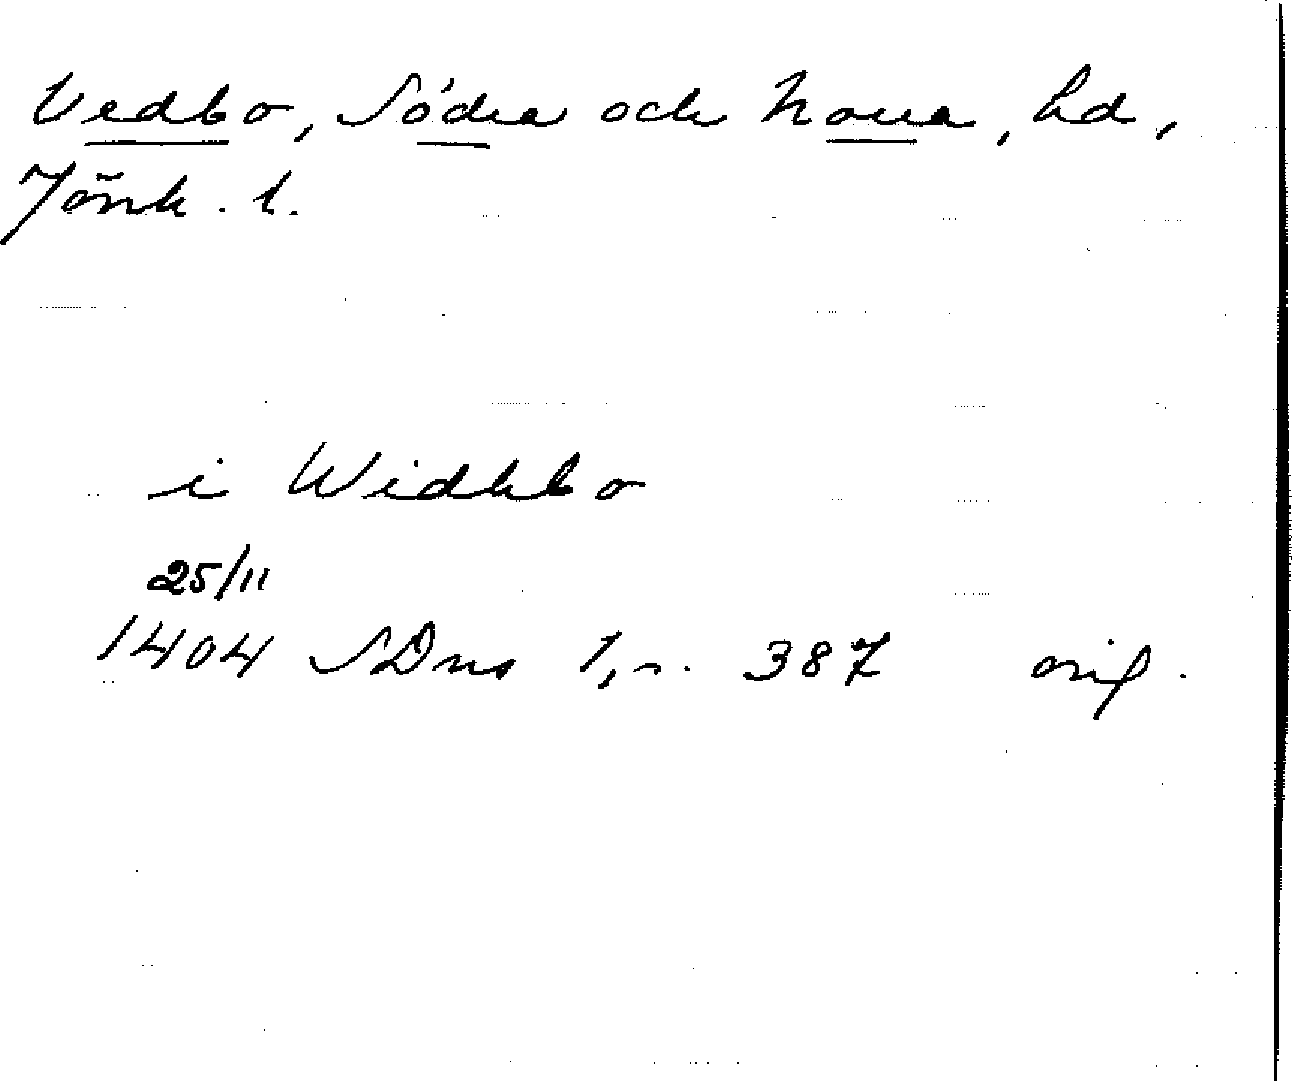 Vedbo, Södra och Norra, hd,
Jönk. l.
i Widhbo
25/11
1404 SDns 1, s. 387 orig.